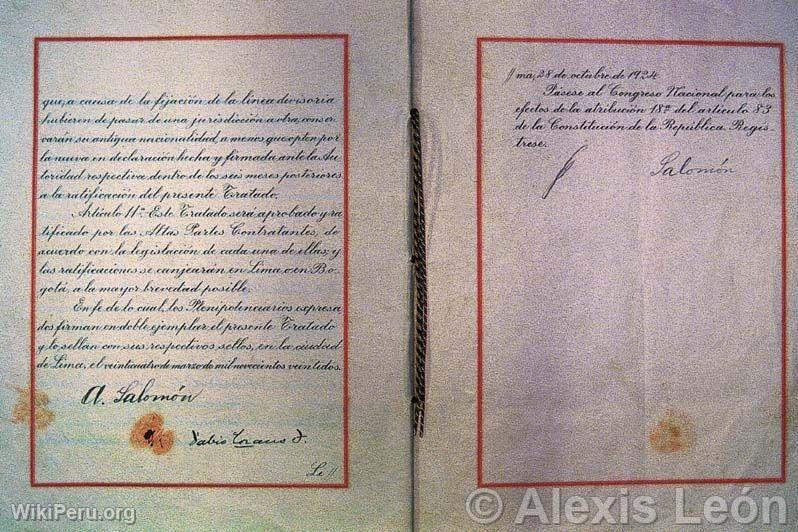 que, a causa de la fijación de la línea divisoria
hubieren de pasar de una jurisdicción a otra, conser
varán su antigua nacionalidad, a menos que opten por
la nueva en declaración hecha y firmada ante la Au
toridad respectiva, dentro de los seis meses posteriores
a la ratificación del presente Tratado.
Artículo 11º. Este Tratado será aprobado y ra
tificado por las Altas Partes Contratantes, de
acuerdo con la legislación de cada una de ellas; y
las ratificaciones se canjearán en Lima o en Bo-
gotá, a la mayor brevedad posible.
En fe de lo cual, los Plenipotenciarios expresa
dos firman en doble ejemplar el presente Tratado
y lo sellan con sus respectivos sellos, en la ciudad
de Lima, el veinticuatro de marzo de mil novecientos veintidos.
A. Salomón
Fabio Lozano T.
Li
ma, 28 de octubre de 1924
Pásese al Congreso Nacional para los
efectos de la atribución 18ª del artículo 83
de la Constitución de la República. Regís-
trese.
Salomón
WikiPeru.org
© Alexis León